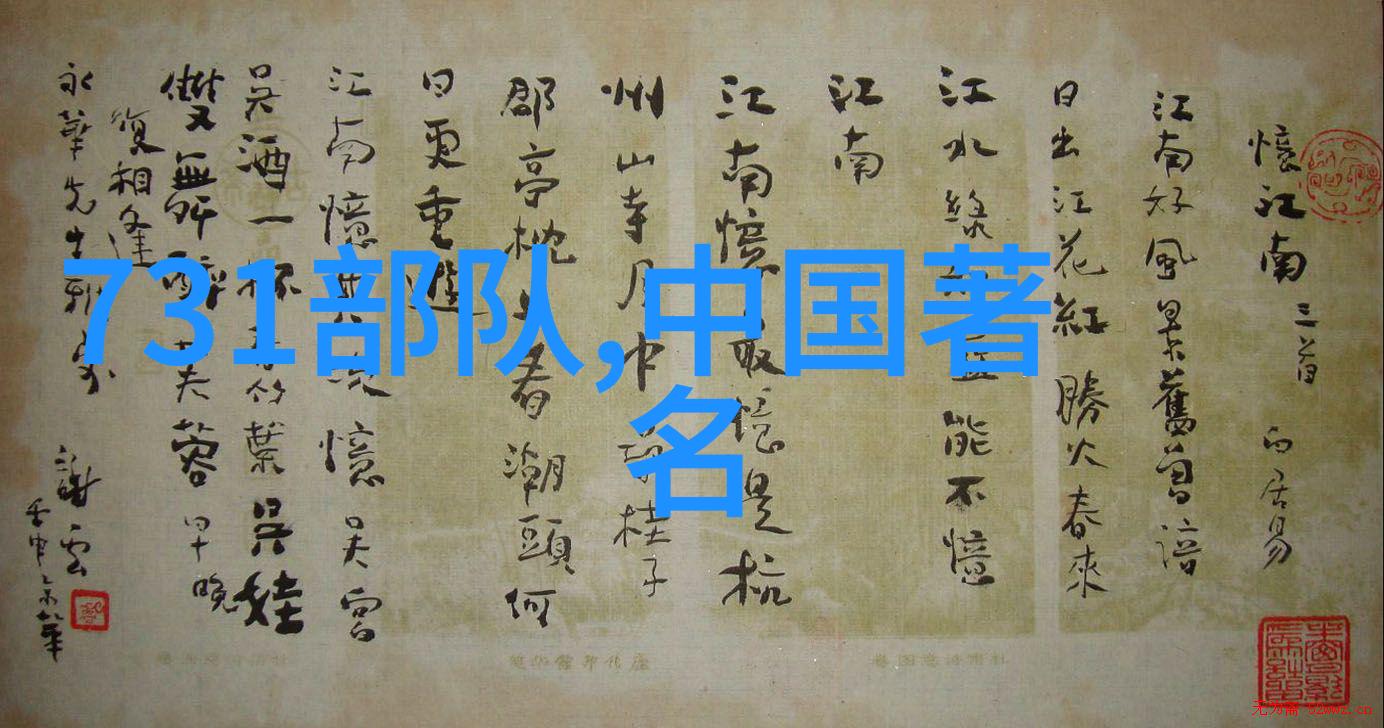 憶江南 三首 白居易
江南好風景舊曾諳
日出江花紅勝火春來
江水綠 能不憶
江南
江南憶最憶是杭
州山寺月中尋桂子
郡亭枕上看潮頭何
日更重遊
江南憶其次憶吳宮
吳酒一杯春竹葉吳娃
雙舞醉芙蓉早晚
復相逢
永華先生
謝雲
731部队,中国著
名
无为斋 52wwz.cn